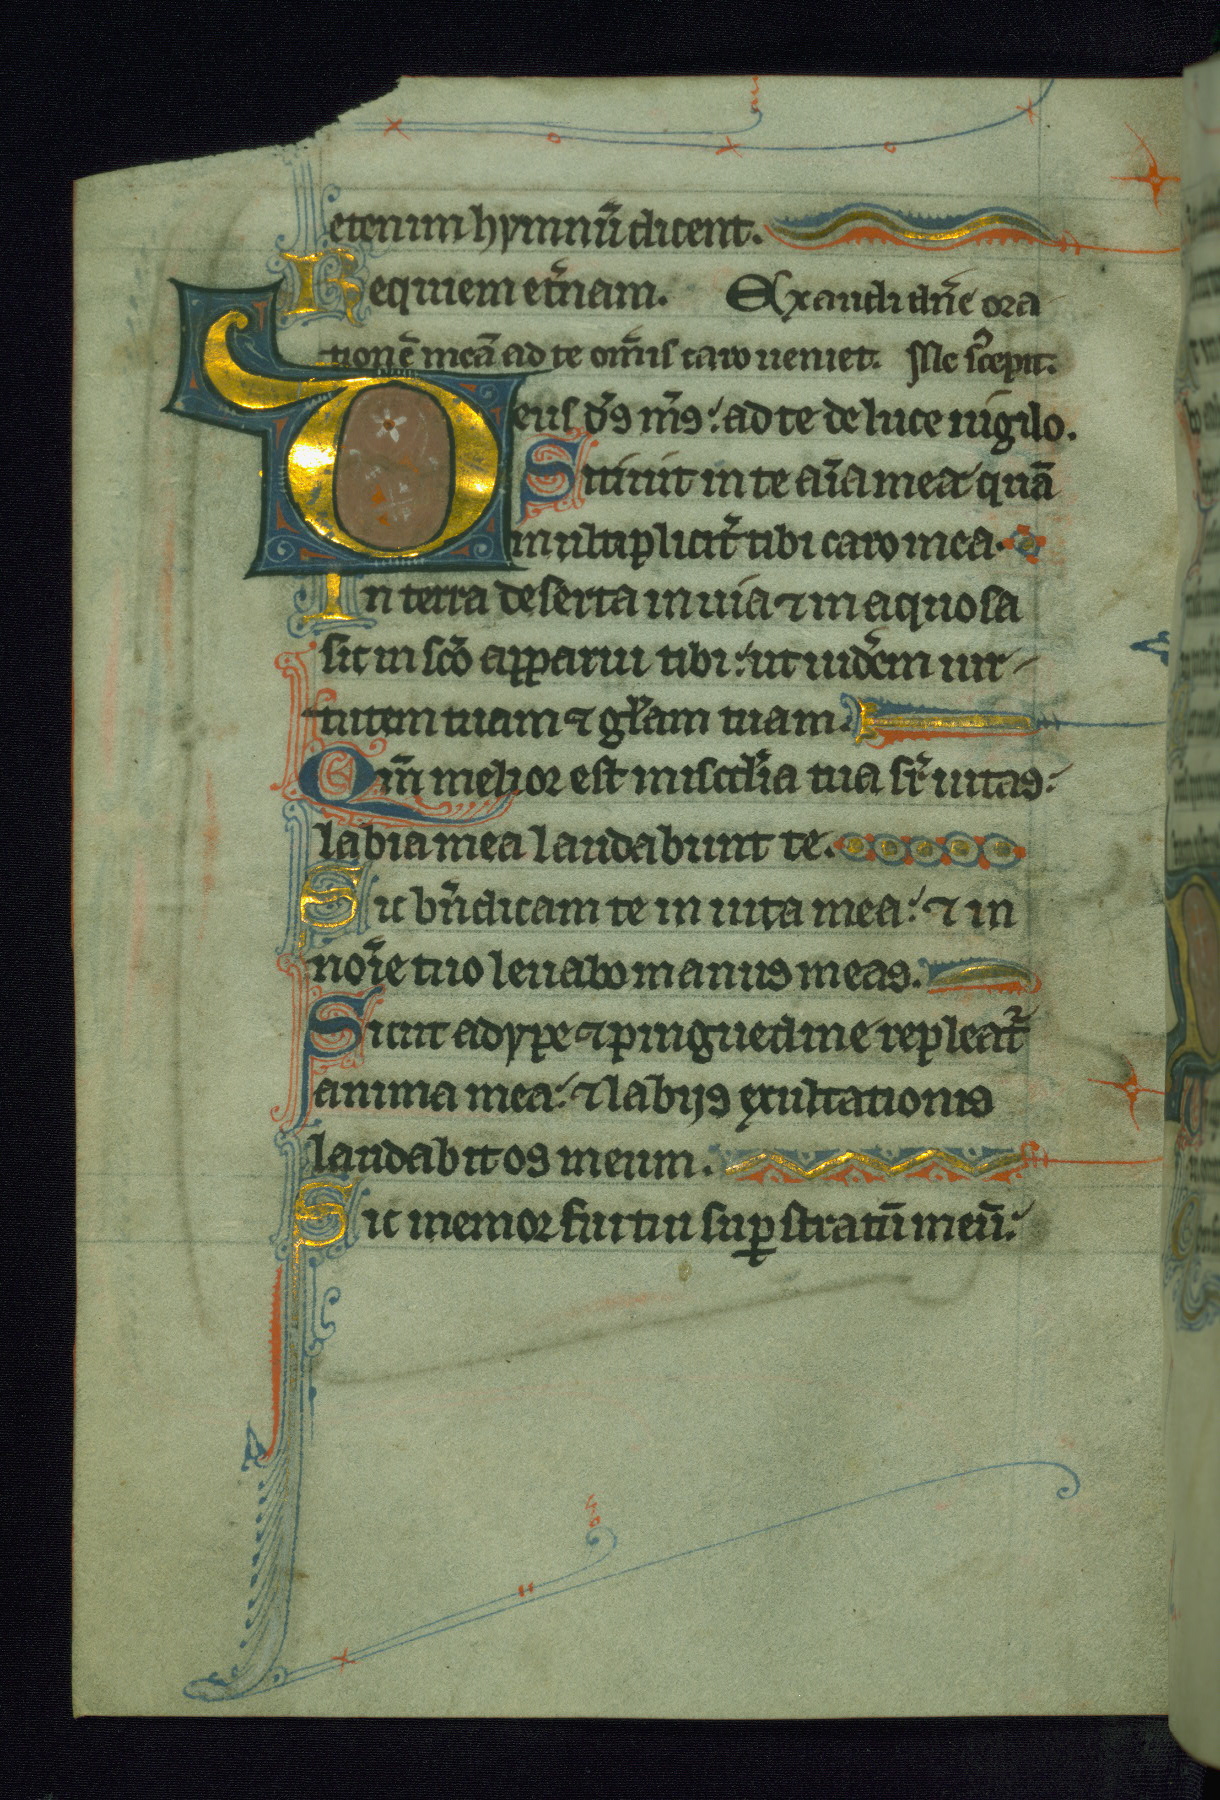 etenim hymnũ dicent.
Requiem et̃nam. Exaudi dñe ora
tionẽ meã ad te om̃is caro ueniet. Me scepit.
Deus ds̃ ms̃: ad te de luce uigilo.
Sitiuit in te aĩa mea quã
multiplicit̃ tibi caro mea.
In terra deserta inuia ⁊ inaquosa
sic in sc̃o apparui tibi: ut uidẽm uir
tutem tuam ⁊ gl̃am tuam.
Qm̃ melior est misc̃dia tua sr̃ uitas:
labia mea laudabunt te.
Sic bñdicam te in uita mea: ⁊ in
noĩe tuo leuabo manus meas.
Sicut adype ⁊ pinguedine repleat̃
anima mea: ⁊ labijs exultationis
laudabit os meum.
Sic memor fui tui suꝑ stratũ meũ: